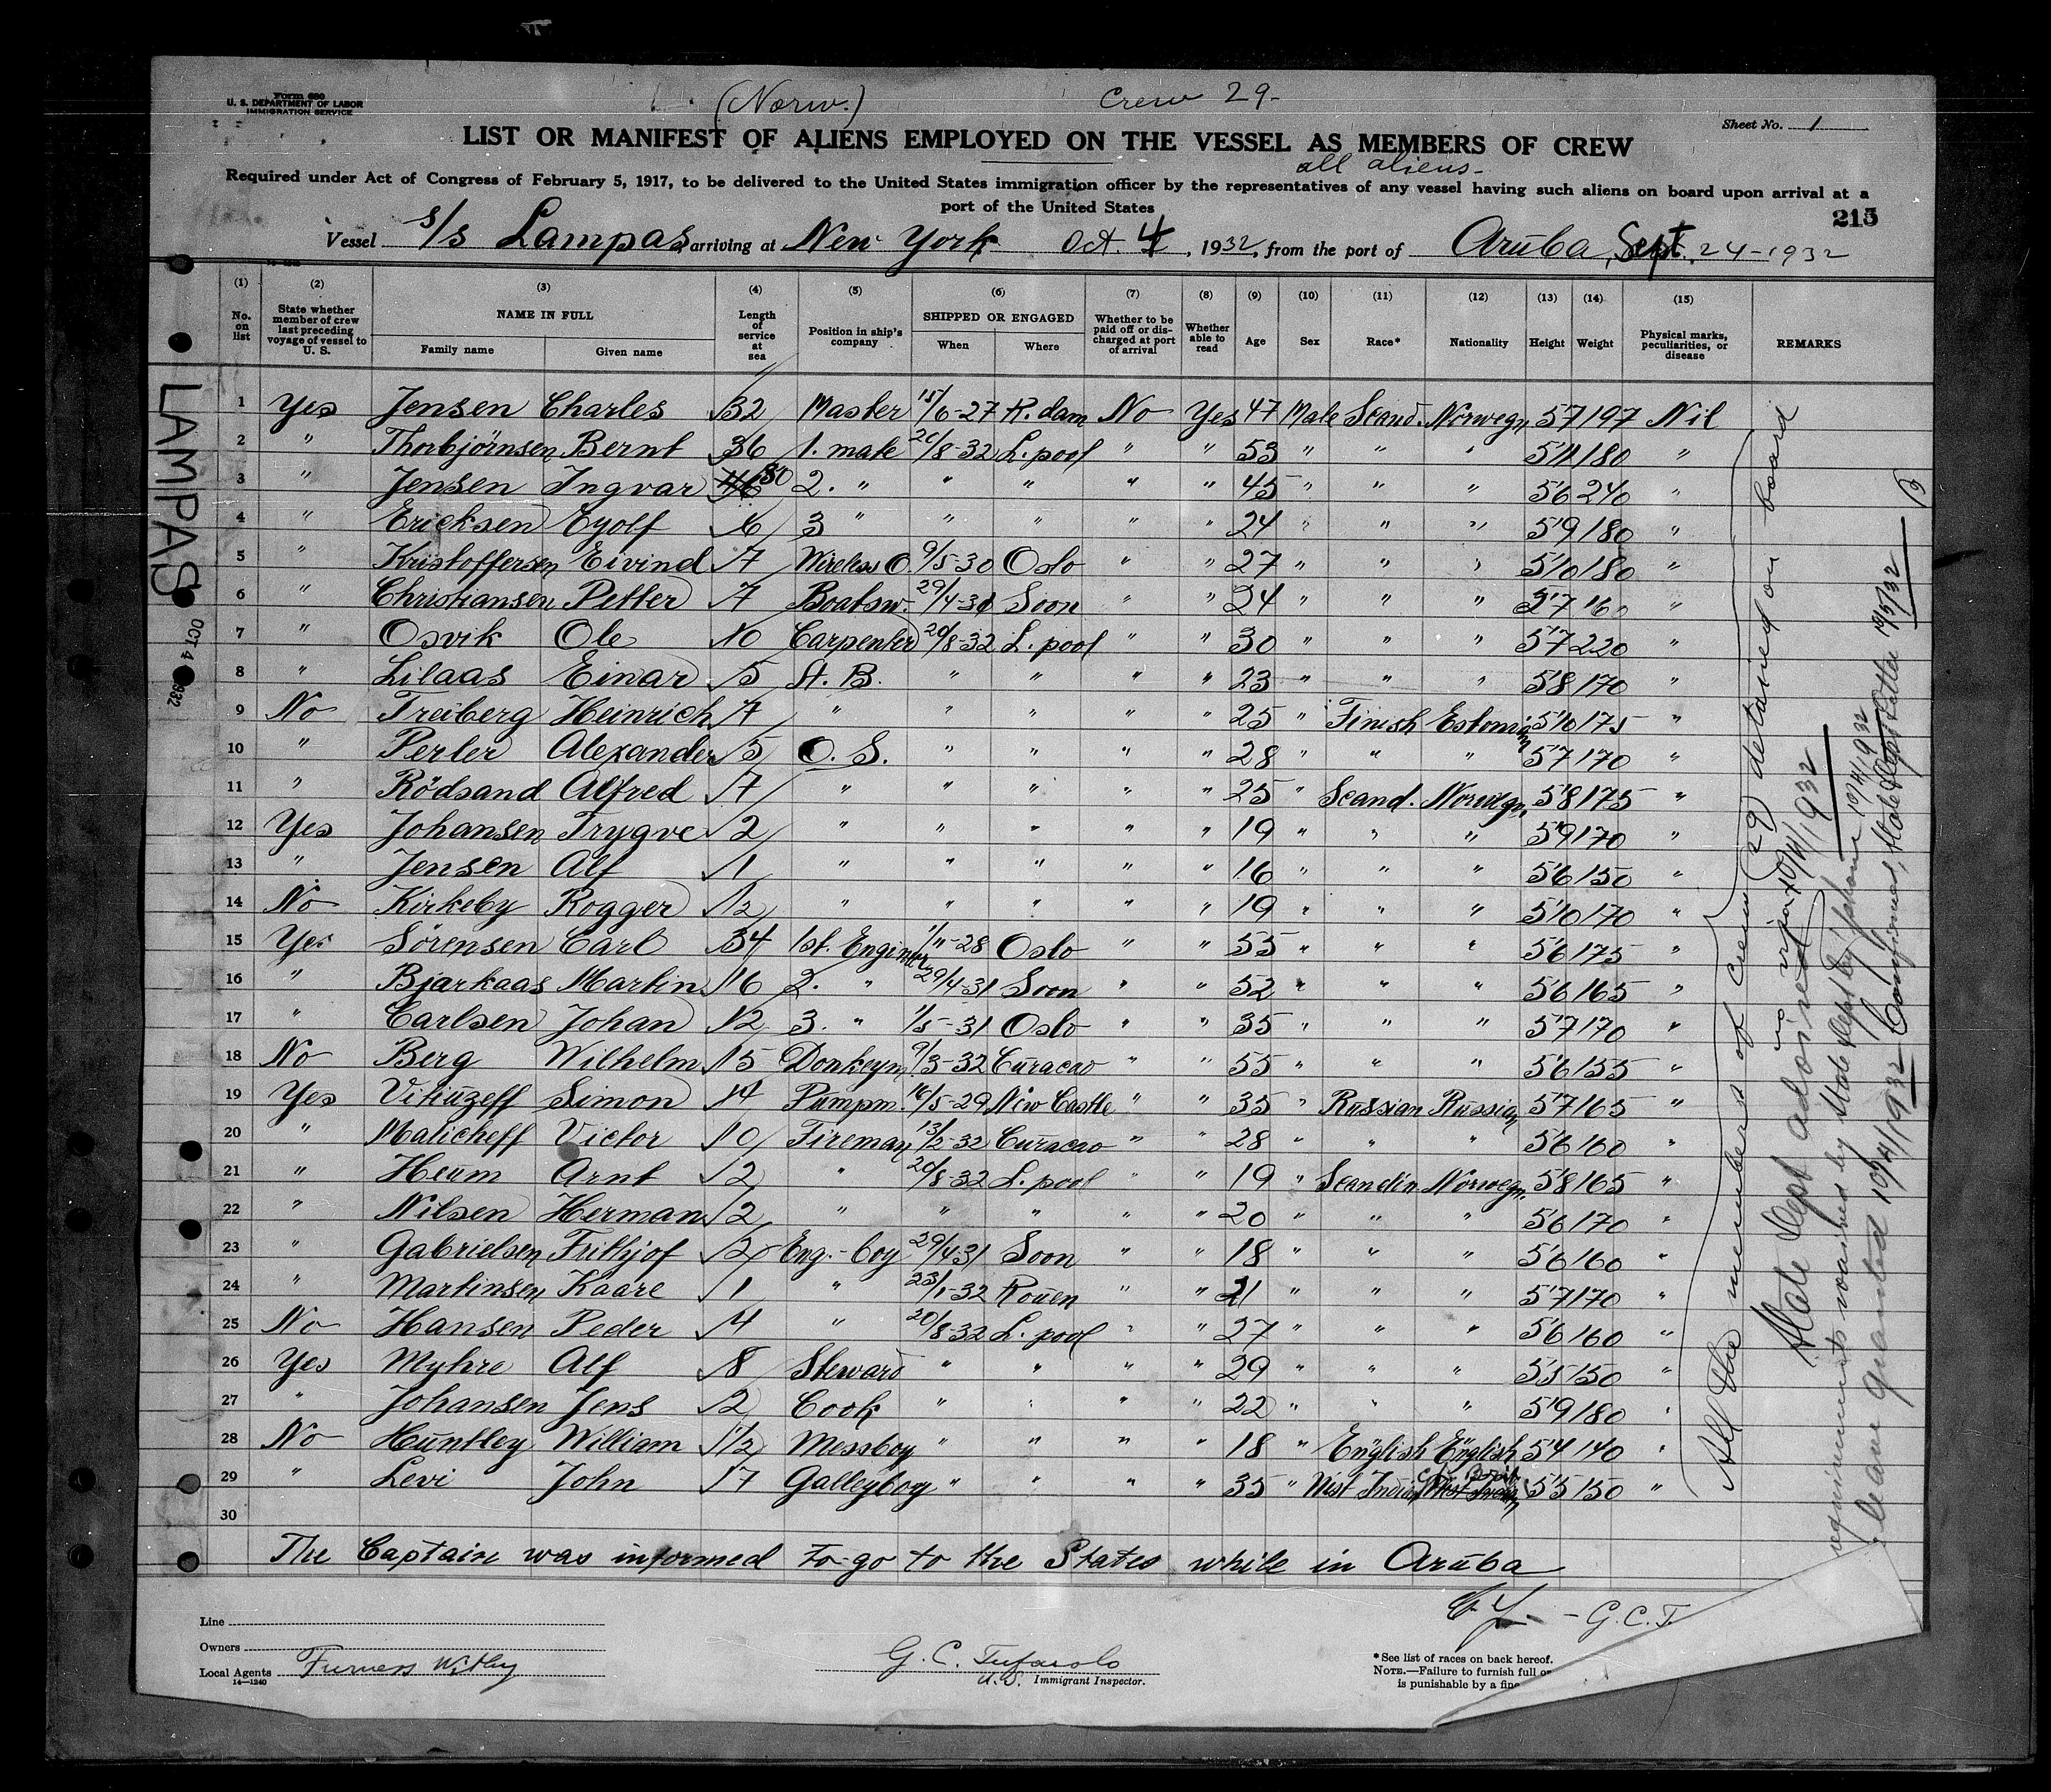 Form 680
U. S. DEPARTMENT OF LABOR
IMMIGRATION SERVICE
(Norw.) Crew 29-
Sheet No. 1
LIST OR MANIFEST OF ALIENS EMPLOYED ON THE VESSEL AS MEMBERS OF CREW
all aliens-
Required under Act of Congress of February 5, 1917, to be delivered to the United States immigration officer by the representatives of any vessel having such aliens on board upon arrival at a
port of the United States
215
Vessel s/s Lampas, arriving at New York Oct. 4, 1932, from the port of Aruba, Sept. 24-1932
(1) (2) (3) (4) (5) (6) (7) (8) (9) (10) (11) (12) (13) (14) (15)
No. on list State whether member of crew last preceding voyage of vessel to U. S. NAME IN FULL Family name Given name Length of service at sea Position in ship's company SHIPPED OR ENGAGED When Where Whether to be paid off or discharged at port of arrival Whether able to read Age Sex Race* Nationality Height Weight Physical marks, peculiarities, or disease REMARKS
1 Yes Jensen Charles 32 Master 15/6-27 R.dam No Yes 47 Male Scand. Norwegn 5'7 197 Nil
2 " Thorbjörnsen Bernt 36 1. mate 20/8-32 L.pool " " 53 " " " 5'11 180 "
3 " Jensen Ingvar 30 2. " " " " " 45 " " " 5'6 240 "
4 " Ericksen Eyolf 6 3 " " " " " 24 " " " 5'9 180 "
5 " Kristoffersen Eivind 7 Wireless O. 9/5-30 Oslo " " 27 " " " 5'10 180 "
6 " Christiansen Petter 7 Boatsw. 29/4-31 Soon " " 24 " " " 5'7 160 "
7 " Osvik Ole 10 Carpenter 20/8-32 L.pool " " 30 " " " 5'7 220 "
8 " Lilaas Einar 5 St. B. " " " " 23 " " " 5'8 170 "
9 No Treiberg Heinrich 7 " " " " " 25 " Finish Estonian 5'10 175 "
10 " Perler Alexander 5 O. S. " " " " 28 " " " 5'7 170 "
11 " Rödsand Alfred 7 " " " " " 25 " Scand. Norwegn. 5'8 175 "
12 Yes Johansen Trygve 2 " " " " " 19 " " " 5'9 170 "
13 " Jensen Alf 1 " " " " " 16 " " " 5'6 150 "
14 No Kirkeby Rogger 1/2 " " " " " 19 " " " 5'10 170 "
15 Yes Sörensen Carl 34 1st. Engineer 1/11-28 Oslo " " 55 " " " 5'6 175 "
16 " Bjarkaas Martin 16 2. " 29/4-31 Soon " " 52 " " " 5'6 165 "
17 " Carlsen Johan 12 3. " 1/5-31 Oslo " " 35 " " " 5'7 170 "
18 No Berg Wilhelm 15 Donkeym. 9/3-32 Curacao " " 55 " " " 5'6 155 "
19 Yes Vituzeff Simon 14 Pumpm. 16/5-29 New Castle " " 35 " Russian Russian 5'7 165 "
20 " Maticheff Victor 10 Fireman 13/2-32 Curacao " " 28 " " " 5'6 160 "
21 " Heum Arnt 2 " 20/8-32 L.pool " " 19 " Scandin Norwegn. 5'8 165 "
22 " Nilsen Herman 2 " " " " " 20 " " " 5'6 170 "
23 " Gabrielsen Frithjof 2 Eng.-boy 29/4-31 Soon " " 18 " " " 5'6 160 "
24 " Martinsen Kaare 1 " 23/1-32 Rouen " " 21 " " " 5'7 170 "
25 No Hansen Peder 4 " 20/8-32 L.pool " " 27 " " " 5'6 160 "
26 Yes Myhre Alf 8 Steward " " " " 29 " " " 5'5 150 "
27 " Johansen Jens 2 Cook " " " " 22 " " " 5'9 180 "
28 No Huntley William 1 1/2 Messboy " " " " 18 " English English 5'4 140 "
29 " Levi John 17 Galleyboy " " " " 35 " West Indian Brit. 5'5 150 "
30
The Captain was informed to go to the States while in Aruba
- G.C.T.
Line
Owners
Local Agents Furness Withy
14—1240
G. C. Tufarolo
U.S. Immigrant Inspector.
*See list of races on back hereof.
NOTE.—Failure to furnish full or
is punishable by a fine
LAMPAS
OCT 4 1932
All the members of crew (29) detained on board
State Dept advised 10/4/1932
requirements waived by State Dept by 'phone 10/4/1932
leave granted 10/4/1932 Confirmed, State Dept Letter 10/5/32